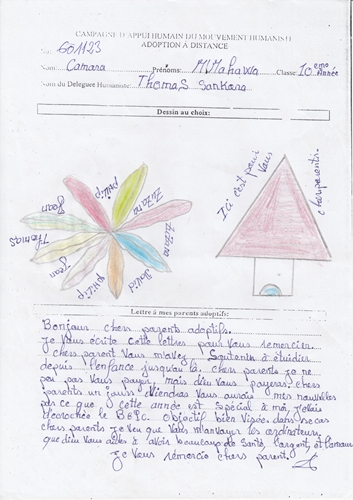 CAMPAGNE D'APPUI HUMAIN DU MOUVEMENT HUMANISTE
ADOPTION A DISTANCE
601123
Nom: Camara Prénoms: M'Mahawa Classe: 10eme Année
Nom du Delegues Humaniste: Thomas Sankara
Dessin au choix:
Ici c'est pour vous
chers parents.
philip
Zuzana
Zuzana
David
philip
Jean
Thomas
Jean
Lettre à mes parents adoptifs:
Bonjour chers parents adoptifs.
Je vous écrite cette lettres pour vous remercier.
chers parent vous m'avez soutenin à étudier
depuis l'enfance jusqu'là. chers parents je ne
peu pas vous payer, mais dieu vous payeras. chers
parents un jours viendras vous aurai mes nouvelles
par ce que cette année est spécial à moi, j'vais
décrochée le BEPC. Objectif bien visée, dans ce cas
chers parents je veu que vous m'envoyer les ordinateurs,
que dieu vous aides à avoir beaucoup de santé, l'argent, et l'amour
Je vous remercie chers parent.